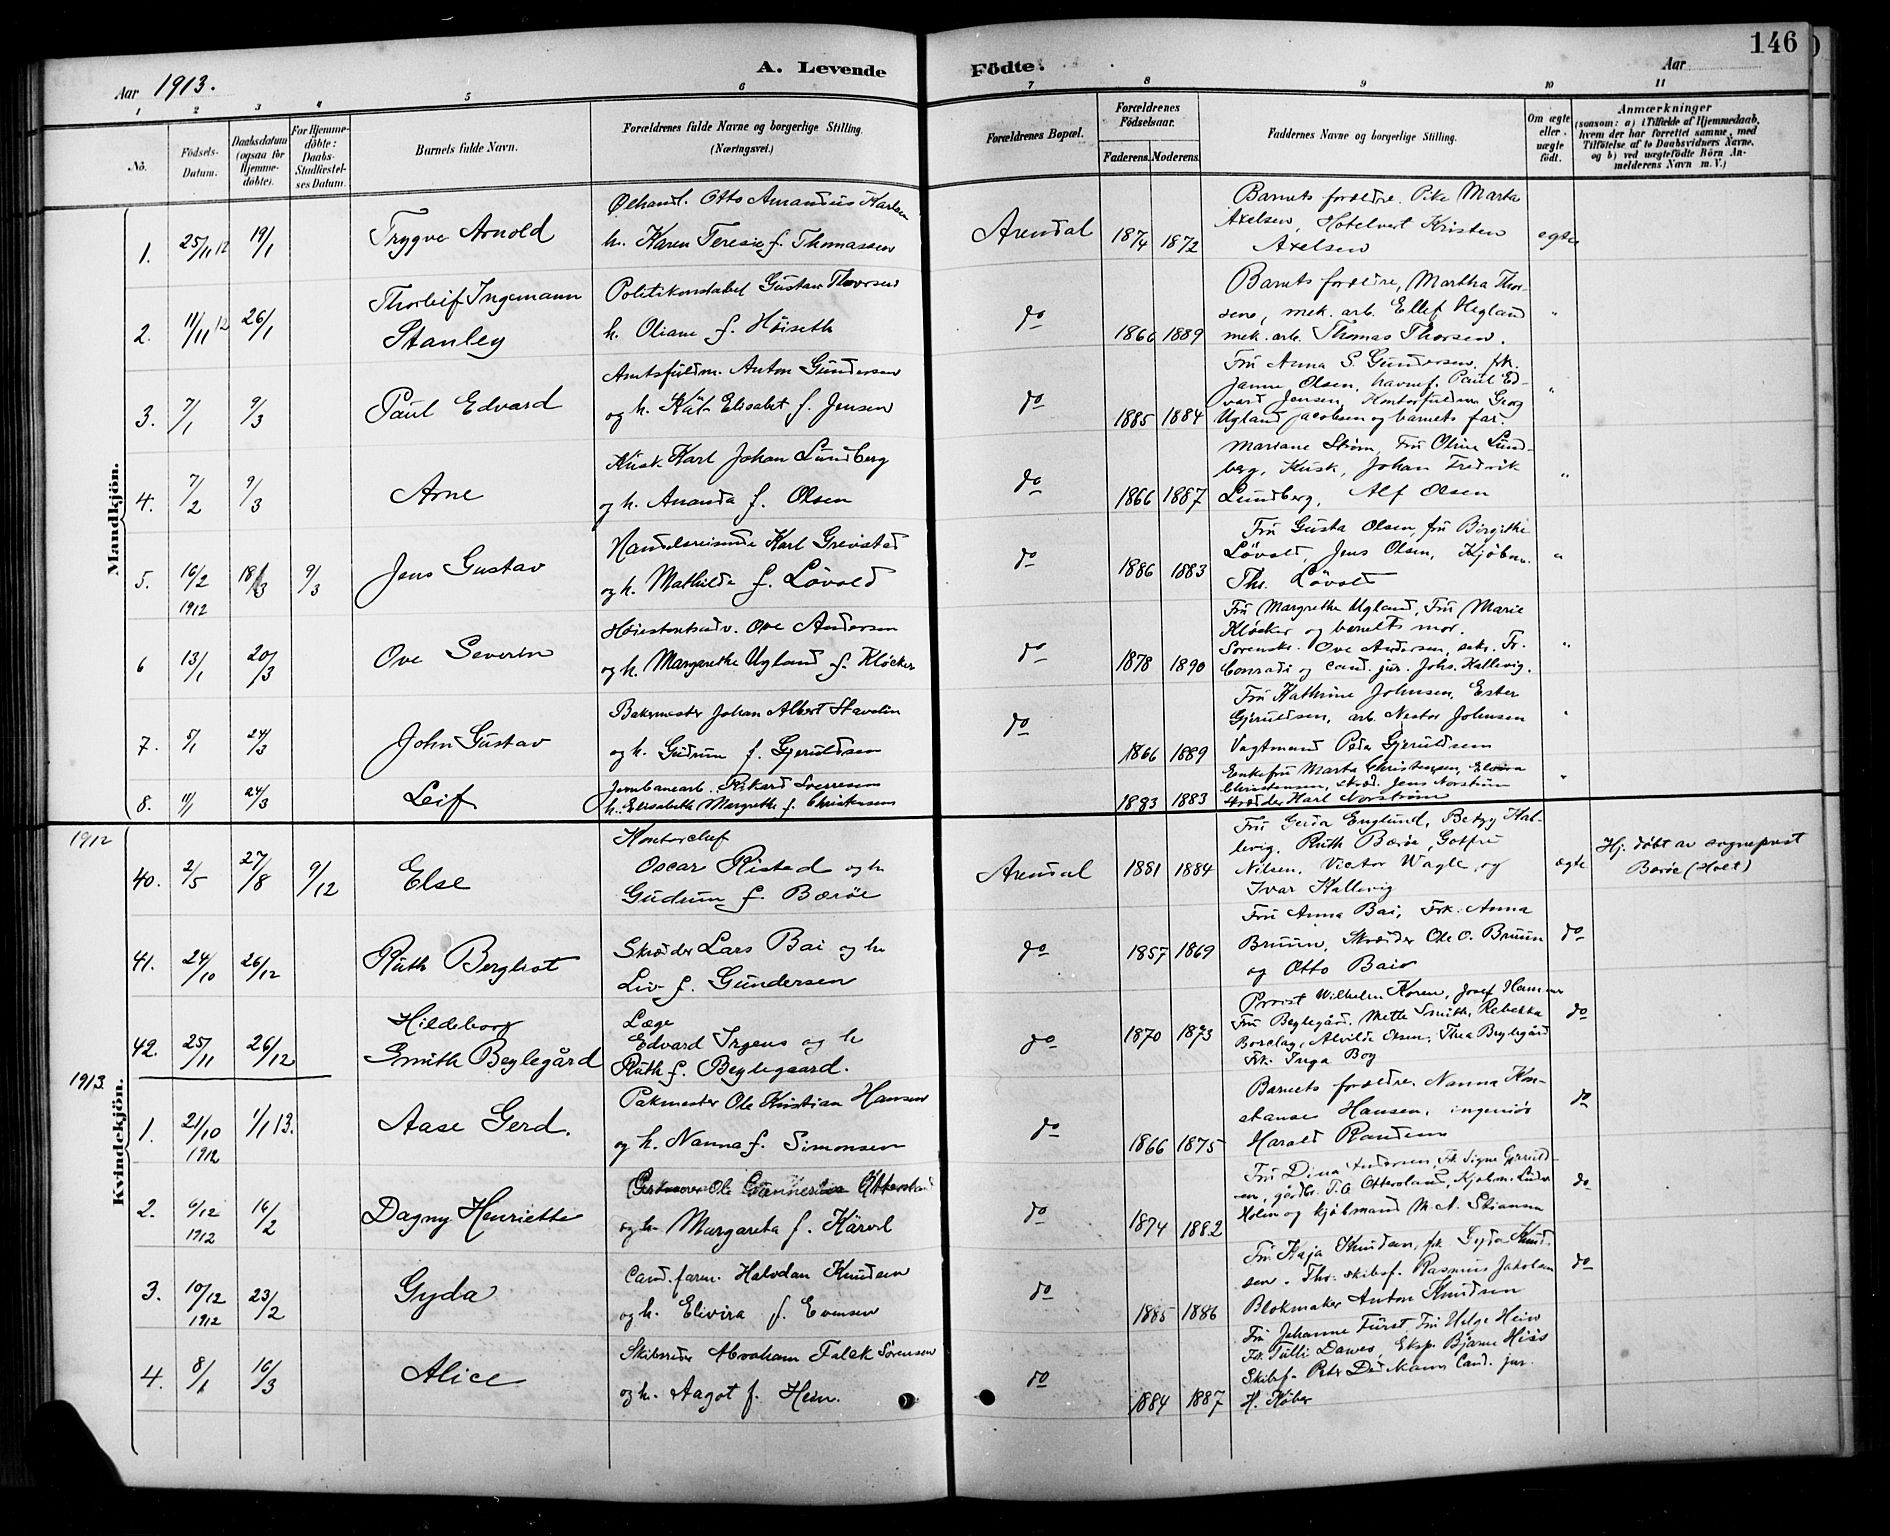 146
A. Levende Födte.
Aar 1913.
Aar
1 2 3 4 5 6 7 8 9 10 11
No.
Födsels-Datum.
Daabsdatum (ogsaa for Hjemme-döbte).
For Hjemme-döbte: Daabs-Stadfæstel-ses Datum.
Barnets fulde Navn.
Forældrenes fulde Navne og borgerlige Stilling. (Næringsvei.)
Forældrenes Bopæl.
Forældrenes Födselsaar.
Faderens. Moderens.
Faddernes Navne og borgerlige Stilling.
Om ægte eller uægte födt.
Anmærkninger
(saasom: a) i Tilfælde af Hjemmedaab, hvem der har forrettet samme, med Tilföielse af to Daabsvidners Navne, og b) ved uægtefödte Börn An-melderens Navn m. V.)
Mandkjön.
1. 25/11 12 19/1 Trygve Arnold
Ølhandl. Otto Amandus Karlsen
h. Karen Teresie f. Thomassen
Arendal 1874 1872
Barnets foreldre. Pike Marta
Axelsen, Hotelvert Kristen
Axelsen
egte
2. 11/11 12 26/1 Thorleif Ingemann
Stanley
Politikonstabel Gustav Thorsen
h. Oliane f. Høiseth
do 1866 1889
Barnets foreldre, Martha Thor-
sen, mek. arb. Ellef Hegland
mek. arb. Thomas Thorsen.
"
3. 7/1 9/3 Paul Edvard
Amtsfuldm. Anton Gundersen
og h. Elisabet f. Jensen
do 1885 1884
Fru Anna S. Gundersen, frk.
Janne Olsen, havnef. Paul Ed-
vard Jensen, Kontorfuldm. Georg
Ugland Jacobsen og barnets far.
"
4. 7/2 9/3 Arne
Kusk Karl Johan Lundberg
og h. Amanda f. Olsen
do 1866 1887
Mariane Strøm, Fru Oline Lund-
berg, Kusk, Johan Fredrik
Lundberg, Alf Olsen
"
5. 16/2 18/3 9/3 Jens Gustav
Handelsreisende Karl Grevstad
og h. Mathilde f. Løvold
do 1886 1883
Fru Gusta Olsen, fru Birgithe
Løvold Jens Olsen, Kjøbm.
Thr. Løvold
"
1912
6 13/1 20/3 Ove Severin
Høiesteretsadv. Ove Andersen
og h. Margarethe Ugland f. Kløcker
do 1878 1890
Fru Margrethe Ugland, Fru Marie
Kløcker og barnets mor.
Sorenskr. Ove Andersen, sekr. Fr.
Conradi og cand. jur. Johs. Hallevig.
"
7. 5/1 24/3 John Gustav
Bakermester Johan Albert Stavelin
og h. Gudrun f. Gjeruldsen
do 1866 1889
Fru Kathrine Johnsen, Ester
Gjeruldsen, arb. Nestor Johnsen
Vagtmand Peder Gjeruldsen
"
8. 1/1 24/3 Leif
Jernbanearb. Rikard Sverresen
h. Elisabeth Margreth f. Christensen
1883 1883
Enkefru Marta Christensen, Elvira
Christensen, skræd. Jens Norstrøm
skrædder Karl Norstrøm
"
1912
Kvindekjön.
40. 2/5 27/8 9/12 Else
Kontorchef
Oscar Ristad og h.
Gudrun f. Bærøe
Arendal 1881 1884
Fru Gerda Englund, Betzy Hal-
levig, Ruth Bærøe, Gotfr.
Nilsen, Victor Wagle, og
Ivar Hallevig
ægte
Hj. døbt av sogneprest
Bærøe (Holt)
41. 24/10 26/12 Ruth Bergliot
Skræder Lars Bai og h.
Liv f. Gundersen
do 1857 1869
Fru Anna Bai, Frk. Anna
Bruun, Skræder Ole O. Bruun
og Otto Bai
do
42. 25/11 26/12 Hildeborg
Smith Beylegård
Læge
Edvard Irgens og h.
Ruth f. Beylegaard.
do 1870 1873
Provst Wilhelm Koren, Josef Hammer
Fru Beylegård. Mette Smith, Rebekka
Borclay, Alvilde Olsen, Thea Beylegård
Frk. Inga Boy
do
1913
1. 21/10 1912 1/1 13. Aase Gerd.
Pakmester Ole Kristian Hansen
og h. Nanna f. Simonsen
do 1866 1875
Barnets foreldre, Nanna Kon-
stanse Hansen, ingeniør
Harald Randem
do
2. 6/12 1912 16/2 Dagny Henriette
og h. Margareta f. Kärvel
do 1874 1882
Fru Dina Andersen, Frk Signe Gjeruld-
sen, gårdbr. T. O. Ottersland, Kjøbm. Ludv
Holm og kjøbmand M. A. Stiansen
do
3. 10/12 1912 23/2 Gyda
Cand. farm. Halvdan Knudsen
og h. Elivira f. Evensen
do 1885 1886
Fru Kaja Knudsen, frk Gyda Knud-
sen. Thr. skibsf. Rasmus Jakobsen
Blokmaker Anton Knudsen
do
4. 8/1 16/3 Alice
Skibsreder Abraham Falck Sørensen
og h. Aagot f. Hein.
do 1884 1887
Fru Johanne Fürst Fru Helge Hein
Frk Tulli Dawes, Eksp. Bjarne Hiis
Skibsf. Peter Dedekam Cand. jur.
H. Køber